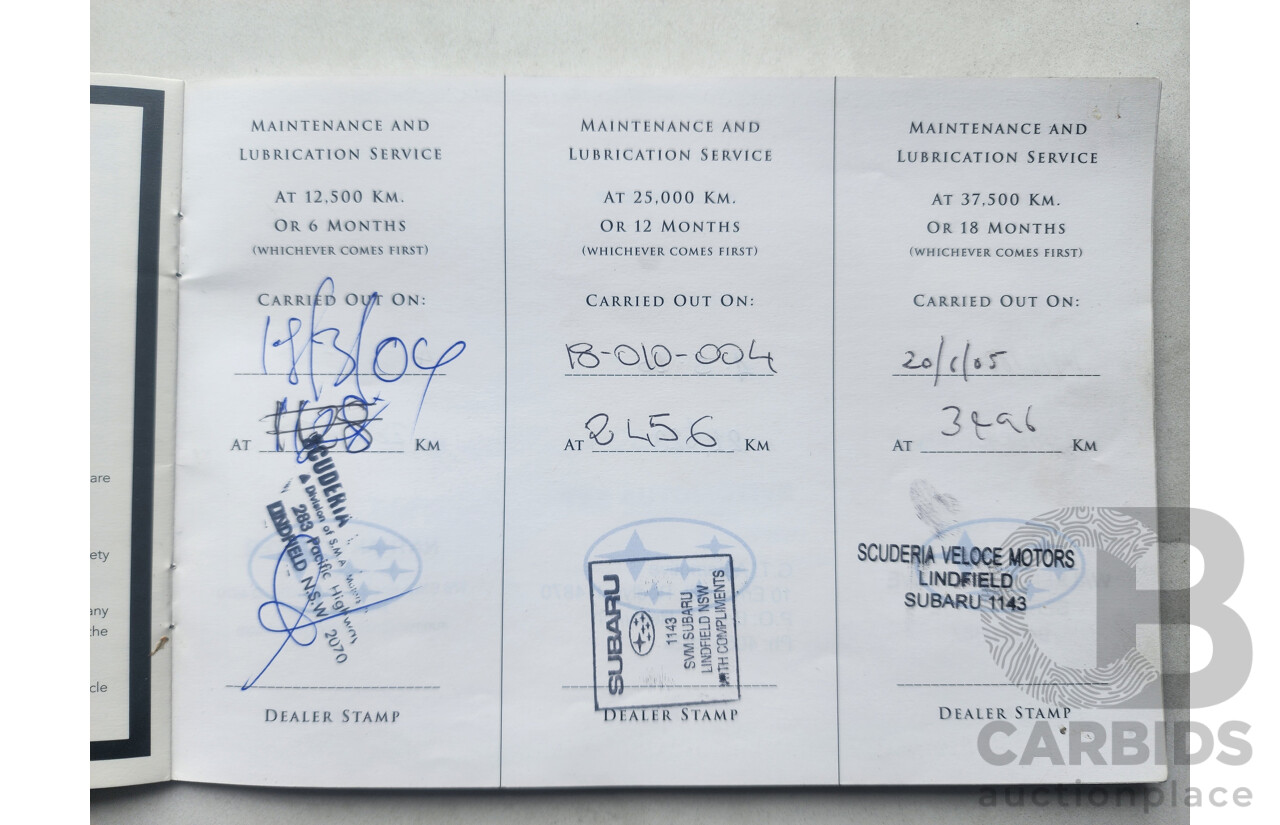 are
ety
any
the
cle
MAINTENANCE AND
LUBRICATION SERVICE
AT 12,500 KM.
OR 6 MONTHS
(WHICHEVER COMES FIRST)
CARRIED OUT ON:
18/3/04
AT 1128 KM
SCUDERIA
A Division of S.M.A Motors
283 Pacific Highway
LINDFIELD N.S.W 2070
DEALER STAMP
MAINTENANCE AND
LUBRICATION SERVICE
AT 25,000 KM.
OR 12 MONTHS
(WHICHEVER COMES FIRST)
CARRIED OUT ON:
18-010-004
AT 2456 KM
SUBARU
1143
SVM SUBARU
LINDFIELD NSW
WITH COMPLIMENTS
DEALER STAMP
MAINTENANCE AND
LUBRICATION SERVICE
AT 37,500 KM.
OR 18 MONTHS
(WHICHEVER COMES FIRST)
CARRIED OUT ON:
20/1/05
AT 3496 KM
SCUDERIA VELOCE MOTORS
LINDFIELD
SUBARU 1143
DEALER STAMP
CB
CARBIDS
auctionplace